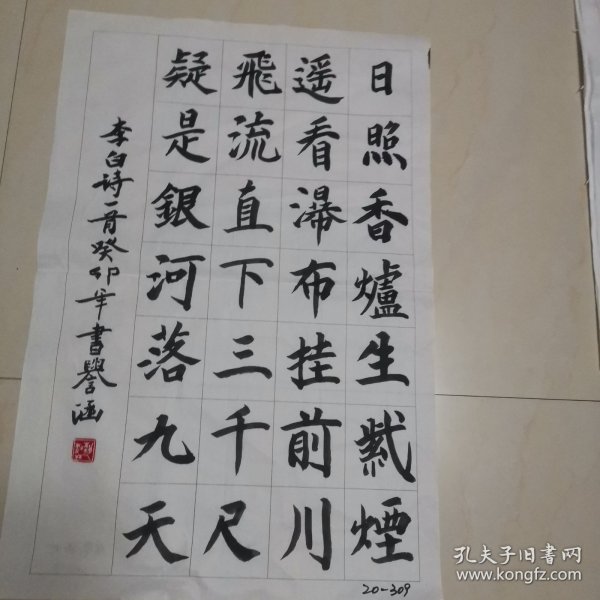 日照香爐生紫煙
遥看瀑布挂前川
飛流直下三千尺
疑是銀河落九天
李白詩一首癸卯年書譽涵
20-309
孔夫子旧書网
www.kongfz.com